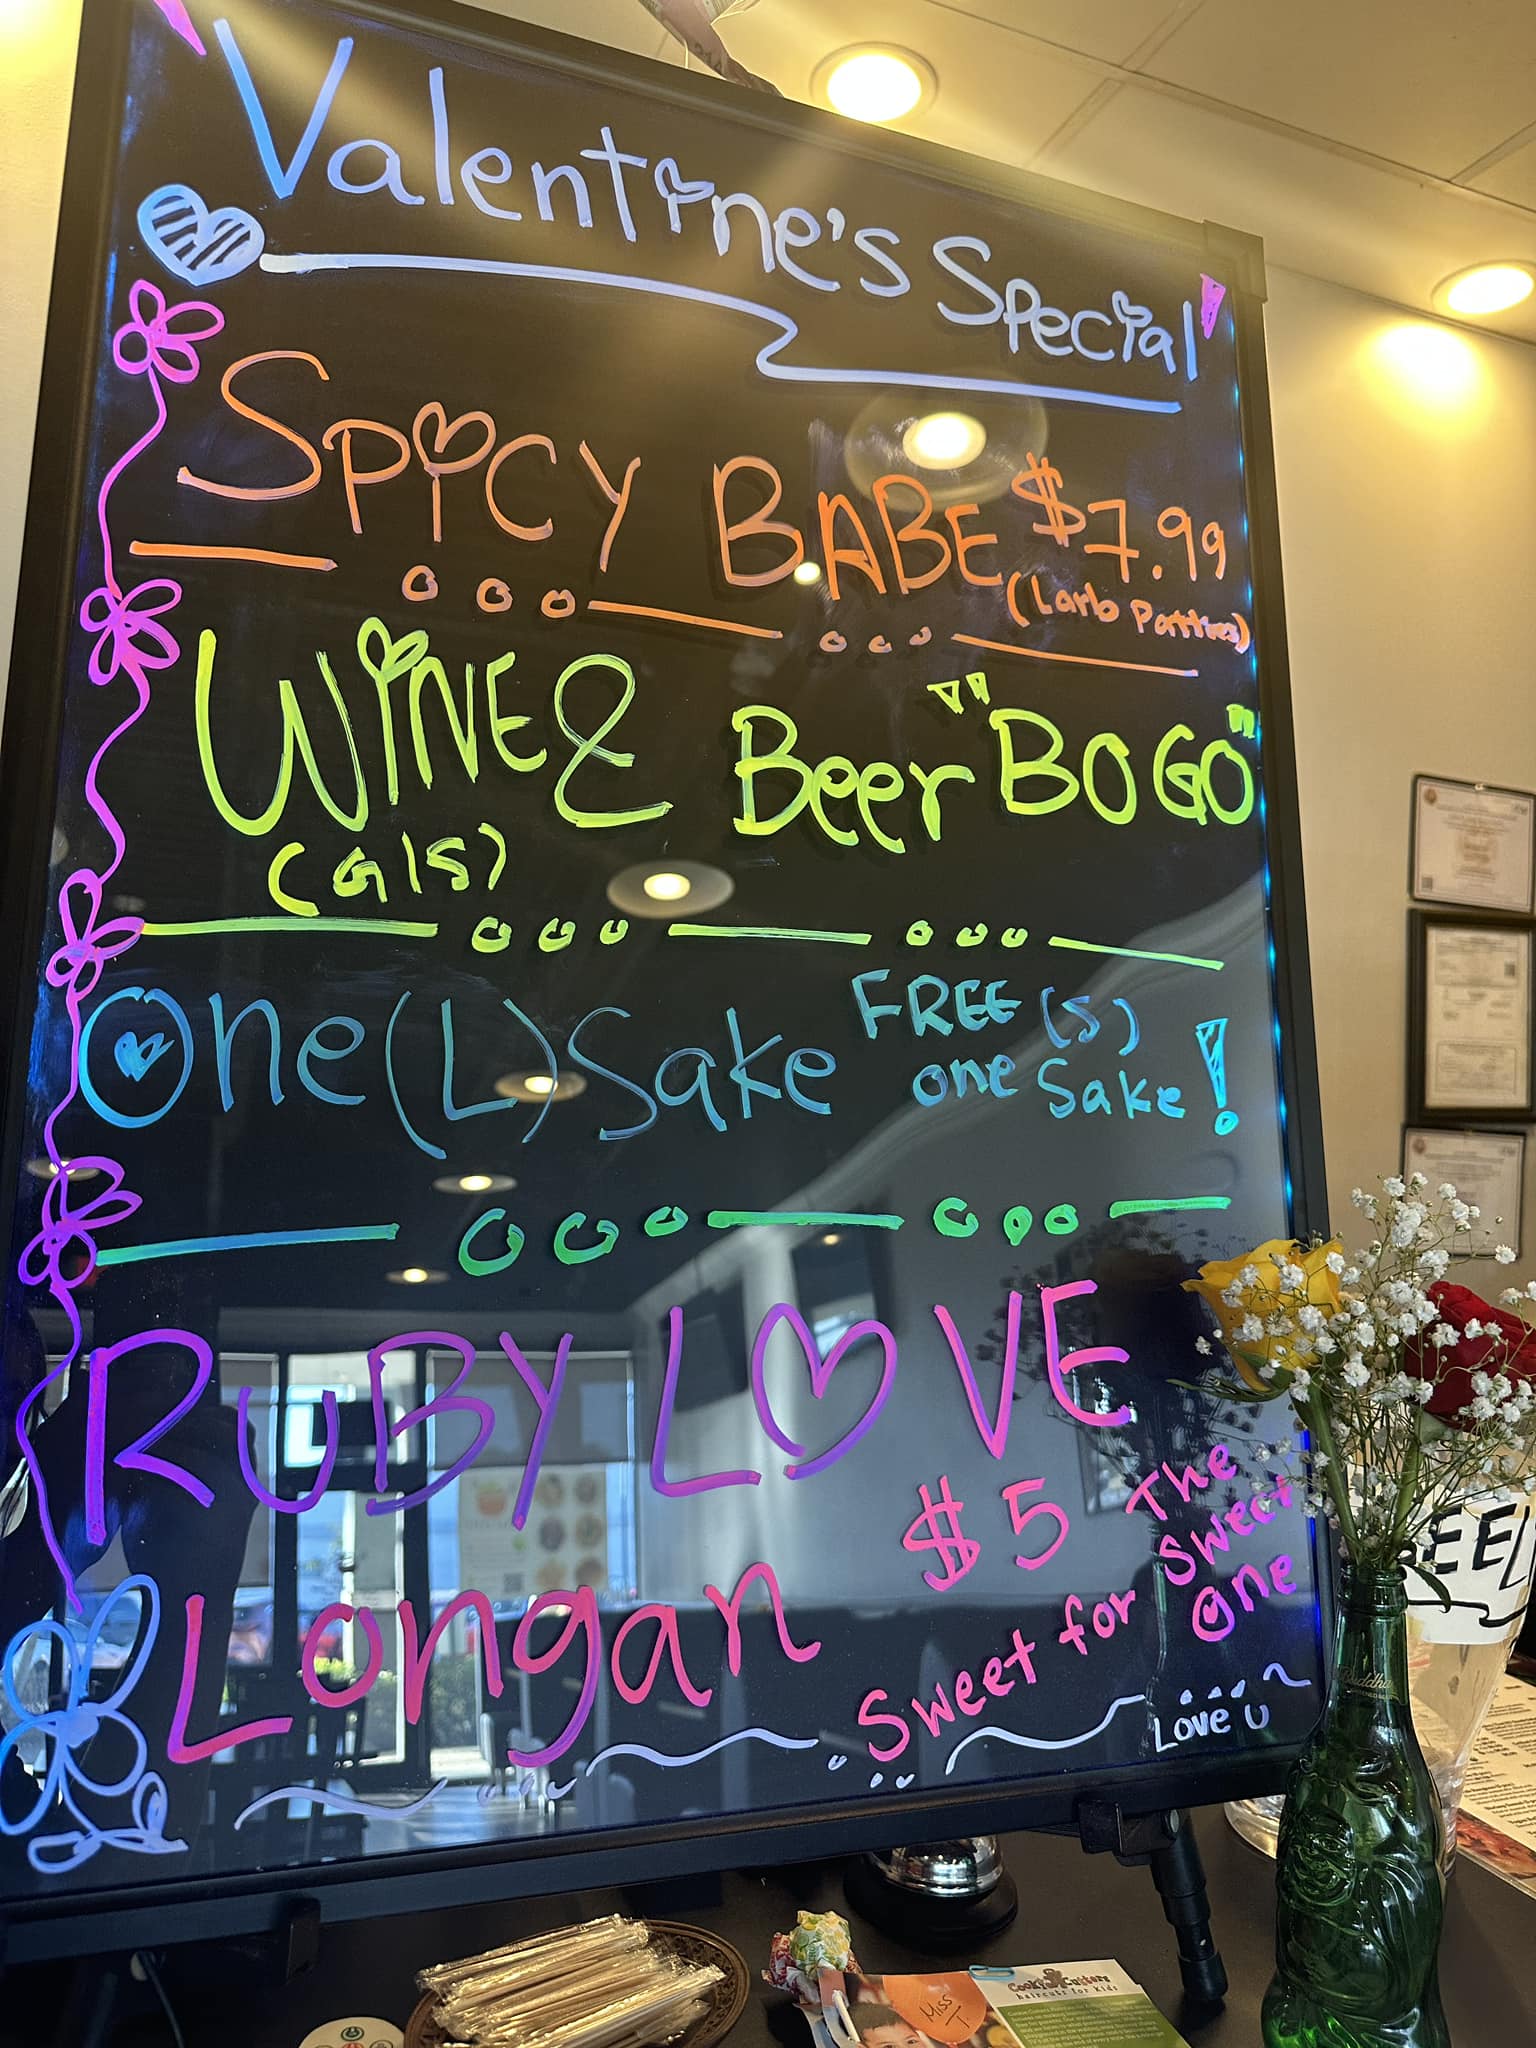 Valentine's Special
SPiCY BABE $7.99
(Larb Patties)
WiNE & Beer "BOGO"
(GlS)
One (L) Sake FREE (S)
one Sake!
RUBY LOVE
Longan $5
Sweet for The Sweet One
Love U
Buddha
Cookie Cutters
haircuts for kids
MISS T.